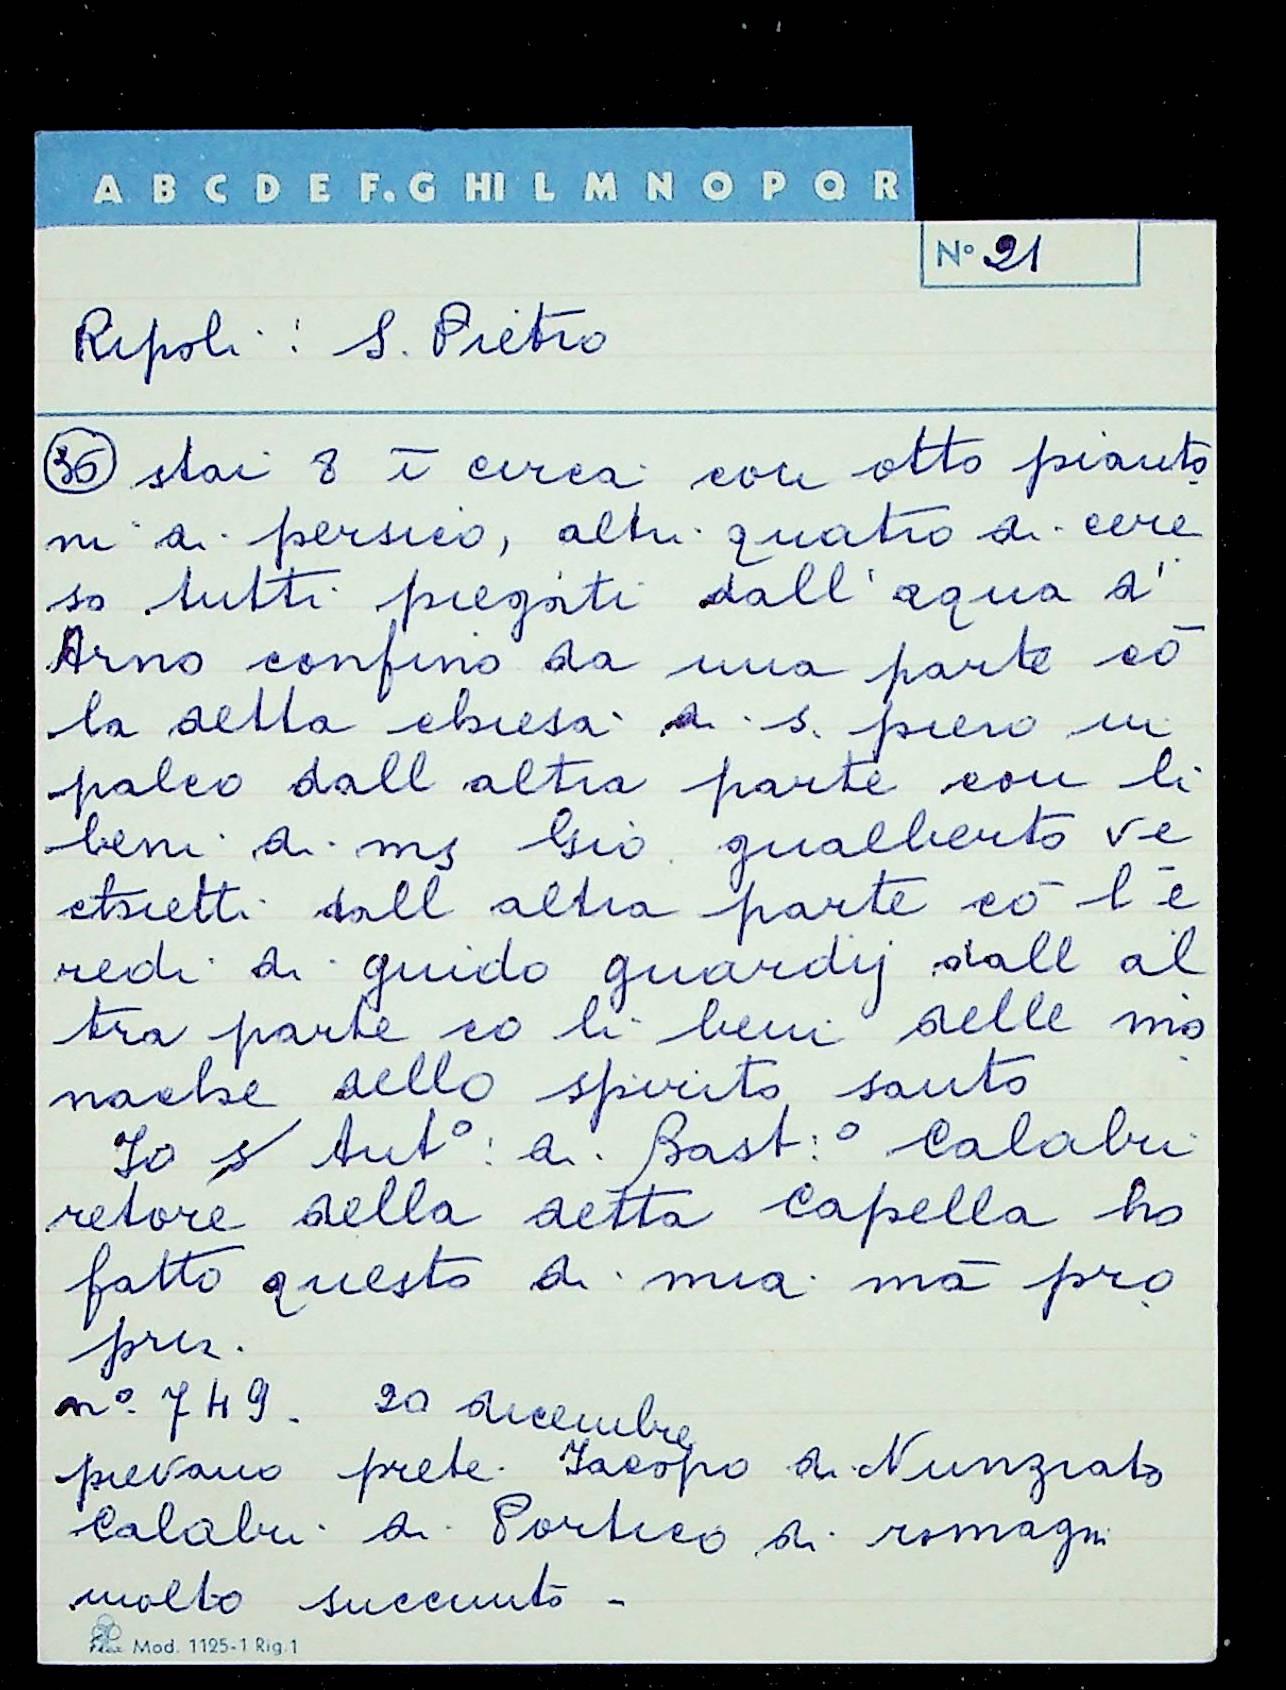 A B C D E F.G HI L M N O P Q R
N° 21
Ripoli: S. Pietro
36 stai 8 ī circa con otto pianto
ni di persico, altri quatro di cere
so tutti piegati dall'aqua d'
Arno confino da una parte cō
la detta chiesa di s. piero in
palco dall altra parte con li
beni di ms Gio. gualberto ve
chietti dall altra parte cō l'ē
redi di guido guardij dall al
tra parte co li beni delle mo
nache dello spirito santo
Io s/ Ant°: di Bast:° Calabri
retore della detta Capella ho
fatto questo di mia mā pro
pria.
n°. 749. 20 dicembre
pievano prete Iacopo di Nunziato
Calabri di Portico di romagn
molto succinto -
Mod. 1125-1 Rig.1